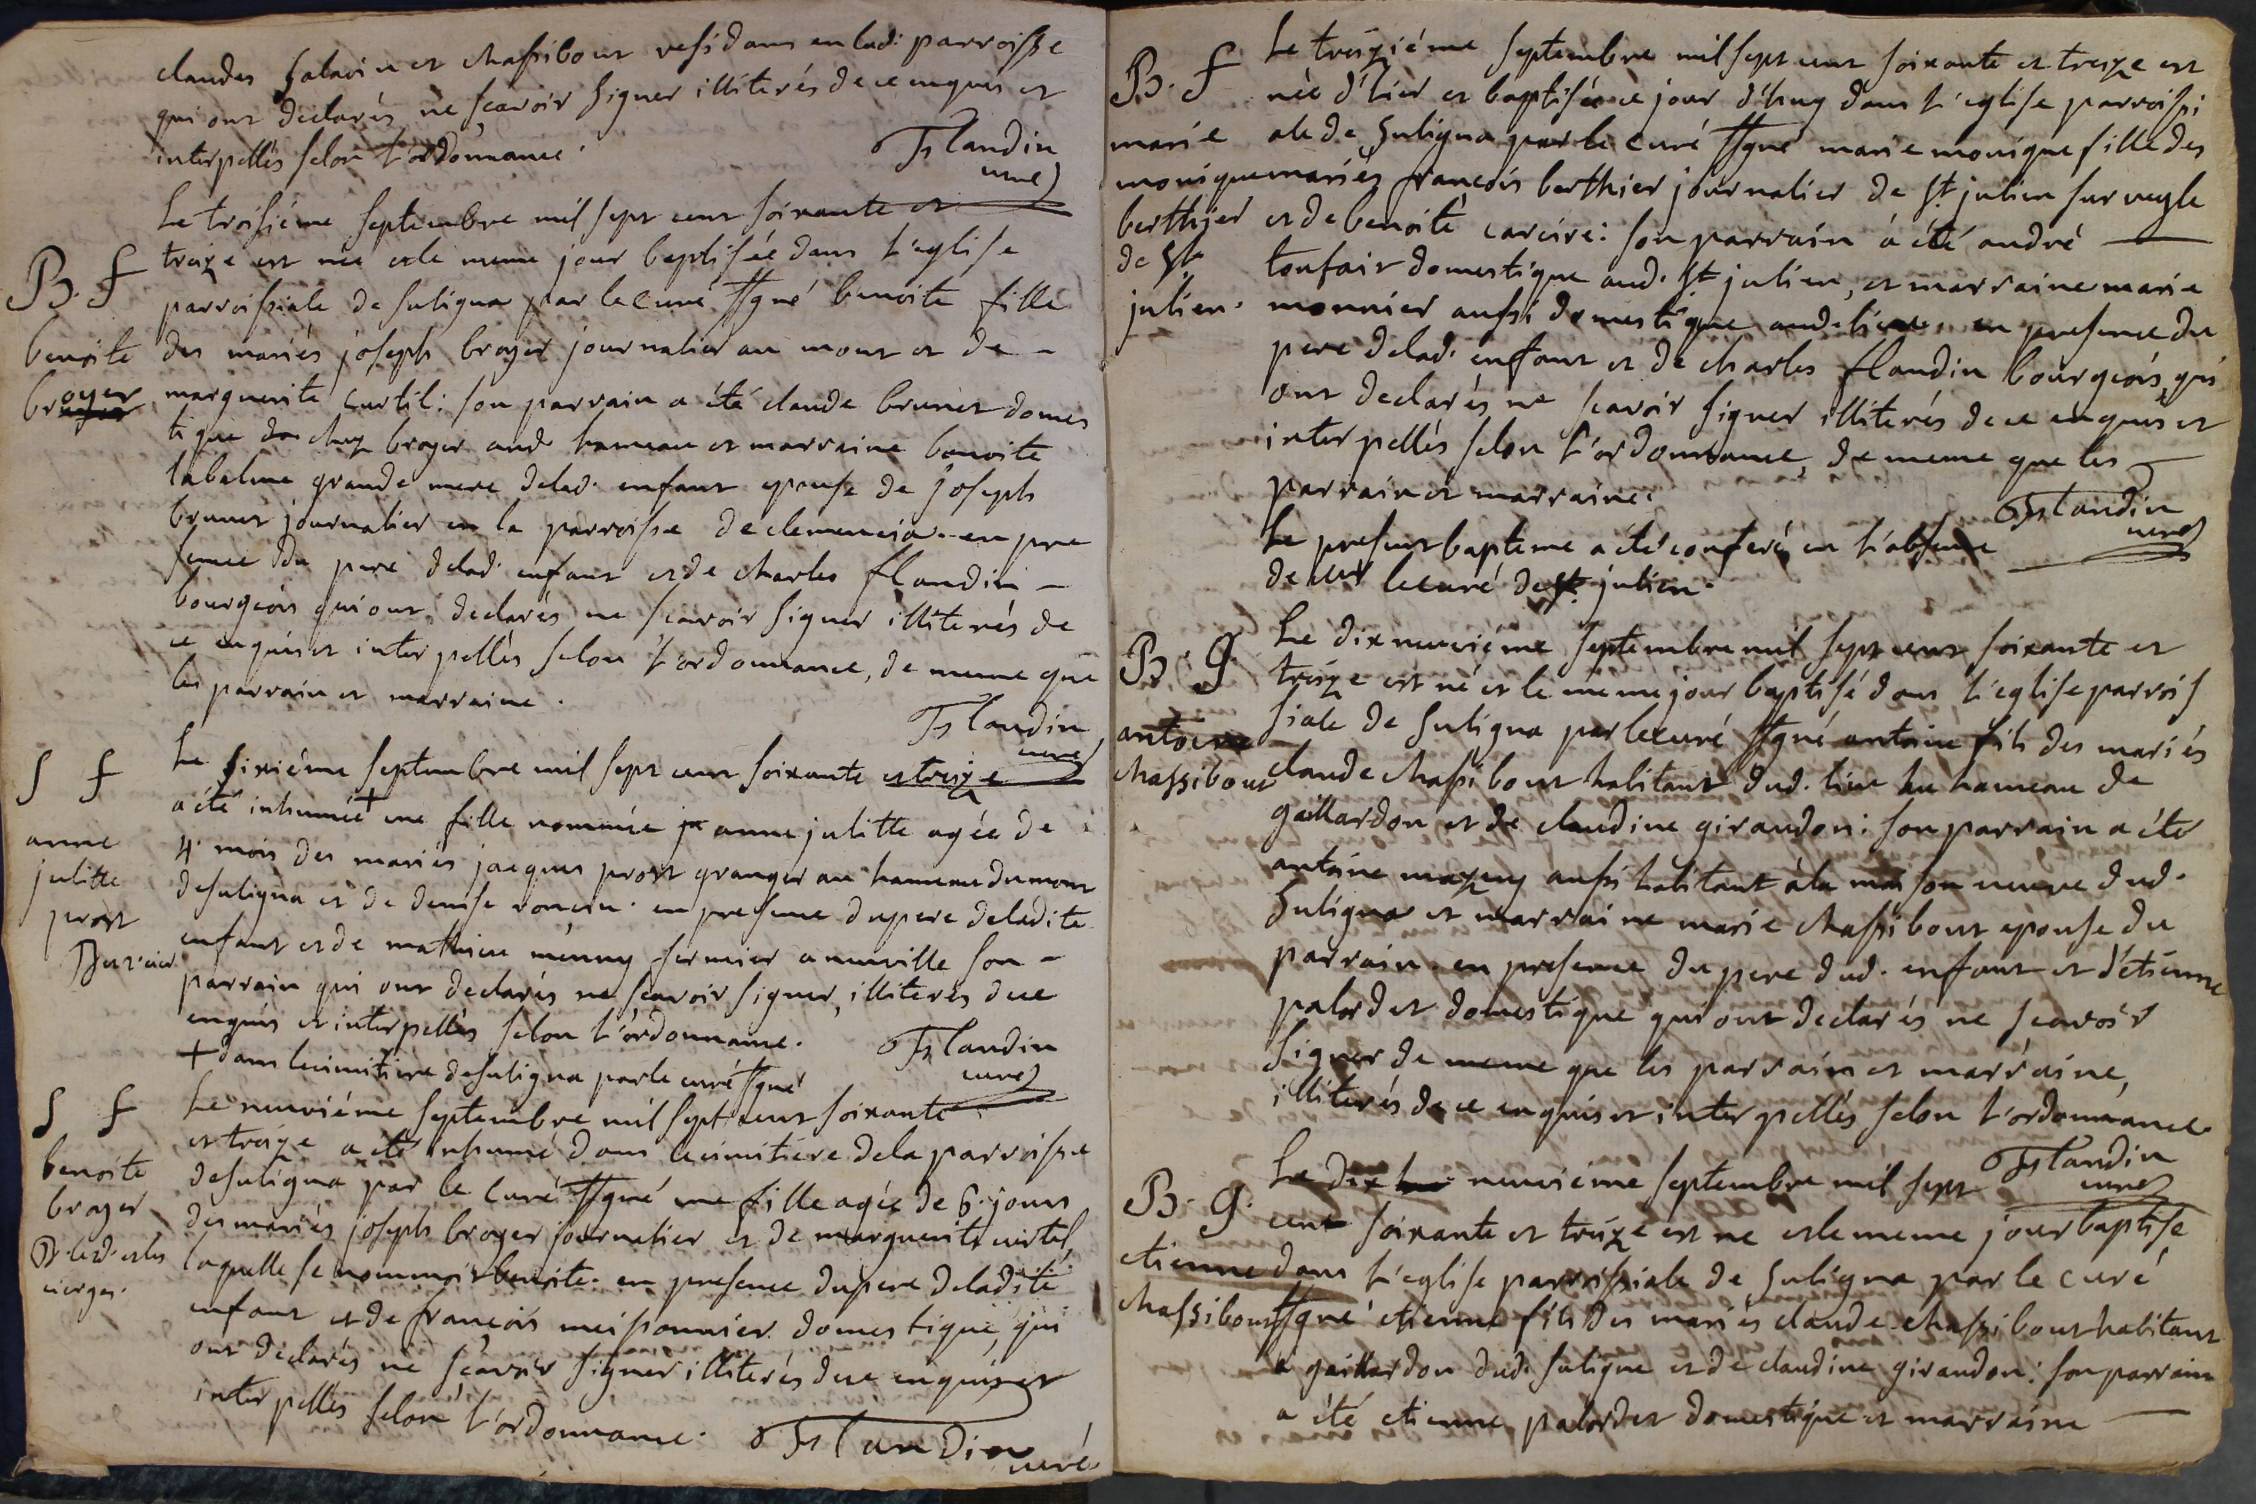 claudes salavin et chassibout residans en lad: parroisse
qui ont déclarés ne scavoir signer illiterés de ce enquis et
interpellés selon l'ordonnance.
Flandin
curé
B. f
benoite
broyer
Le troisiéme septembre mil sept cent soixante et
treize est née et le meme jour baptisée dans l'eglise
parroissiale de suligna par le curé ssgné benoite fille
des mariés joseph broyer journalier au mont et de –
marguerite curtil: son parrain a été claude brunet domes
tique chez broyer aud. hameau et marraine benoite
labalme grande mere delad. enfant epouse de joseph
brunet journalier en la parroisse de clemencia. en pre
sence du pere delad. enfant et de charles flandin –
bourgeois qui ont declarés ne scavoir signer illiterés de
ce enquis et interpellés selon l'ordonnance, de meme que
les parrain et marraine.
Flandin
curé
S f
anne
julitte
prost
Le sixiéme septembre mil sept cent soixante et treize
a été inhumée + une fille nommée anne julitte agée de
4. mois des mariés jacques prost granger au hameau du mont
de suligna et de denise. en presence du pere deladite
enfant et de mathieu menny fermier a neuville son –
parrain qui ont declarés ne scavoir signer, illiterés de ce
enquis et interpellés selon l'ordonnance.
+ dans le cimitiere de suligna par le curé ssgné
Flandin
curé
S f
benoite
broyer
Le neuviéme septembre mil sept cent soixante
et treize a été inhumé dans le cimitiere de la parroisse
de suligna par le curé ssgné une fille agée de 6. jours
des mariés joseph broyer journalier et de marguerite curtil,
laquelle se nommoit benoite. en presence du pere deladite
enfant et de francois meissonnier domestique, qui
ont déclarés ne scavoir signer illiterés de ce enquis et
interpellés selon l'ordonnance.
Flandin
curé
B. f
marie
monique
berthier
de St
julien.
Le treiziéme septembre mil sept cent soixante et treize est
née d'hier et baptisée ce jour d'huy dans l'eglise parroissi
ale de suligna par le curé ssgné marie monique fille des
mariés francois berthier journalier de St julien sur veyle
et de benoite: son parrain a été andré —
toufair domestique aud. St julien, et marraine marie
monnier aussi domestique aud. lieu. en presence du
pere delad. enfant et de charles flandin bourgeois, qui
ont declarés ne scavoir signer illiterés de ce enquis et
interpellés selon l'ordonnance, de meme que les –
parrain et marraine.
Flandin
curé
Le present bapteme a été conferé en l'absence
de Mr le curé de St. julien.
B. g.
antoine
chassibout
Le dix neuviéme septembre mil sept cent soixante et
treize est né et le meme jour baptisé dans l'eglise parrois
siale de suligna par le curé ssgné antoine fils des mariés
claude chassibout habitant dud. lieu au hameau de
gaillardon et de claudine giraudon: son parrain a été
antoine mazuy aussi habitant à la maison neuve dud.
suligna et marraine marie chassibout epouse du
parrain. en presence du pere dud. enfant et d'étienne
palordet domestique qui ont declarés ne scavoir
signer de meme que les parrain et marraine,
illiterés de ce enquis et interpellés selon l'ordonnance.
Flandin
curé
B. g.
etienne
chassibout
Le dix neuviéme septembre mil sept
cent soixante et treize est né et le meme jour baptisé
dans l'eglise parroissiale de suligna par le curé
ssgné etienne fils des mariés claude chassibout habitant
a gaillardon dud. suligna et de claudine giraudon: son parrain
a été etienne palordet domestique et marraine —